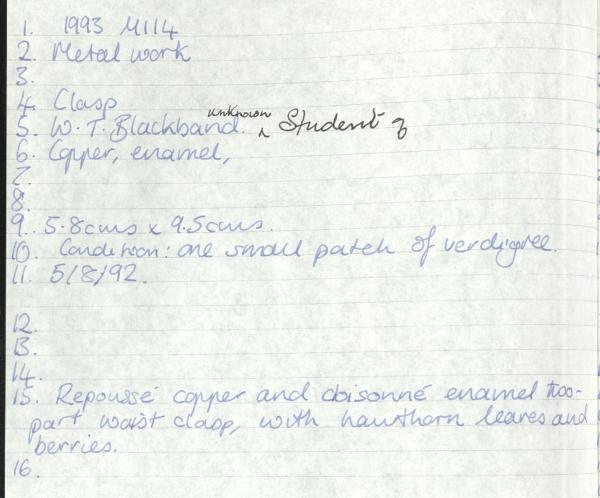 1. 1993 M114
2. Metal work
3.
4. Clasp
5. W.T. Blackband. ^ unknown Student of
6. Copper, enamel,
7.
8.
9. 5.8cms x 9.5cms.
10. Condition: one small patch of verdigree.
11. 5/8/92.
12.
13.
14.
15. Repoussé copper and cloisonné enamel two-
part waist clasp, with hawthorn leaves and
berries.
16.